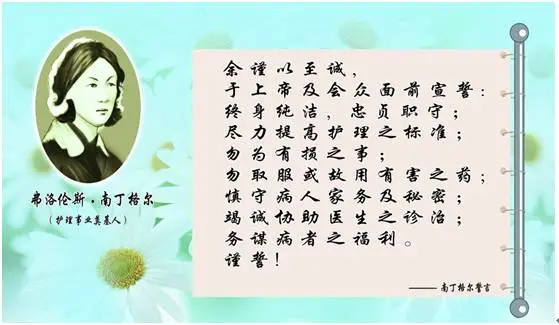 余谨以至诚，
于上帝及会众面前宣誓：
终身纯洁，忠贞职守；
尽力提高护理之标准；
勿为有损之事；
勿取服或故用有害之药；
慎守病人家务及秘密；
竭诚协助医生之诊治；
务谋病者之福利。
谨誓！
—— 南丁格尔誓言
弗洛伦斯·南丁格尔
（护理事业奠基人）